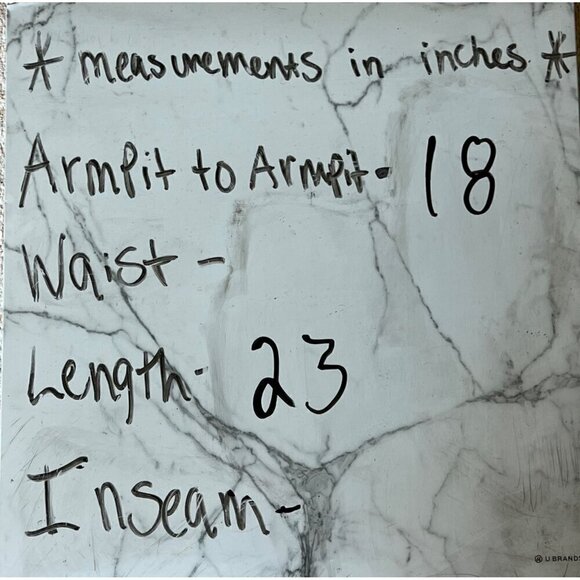 * measurements in inches *
Armpit to Armpit- 18
Waist -
Length- 23
Inseam-
U BRANDS